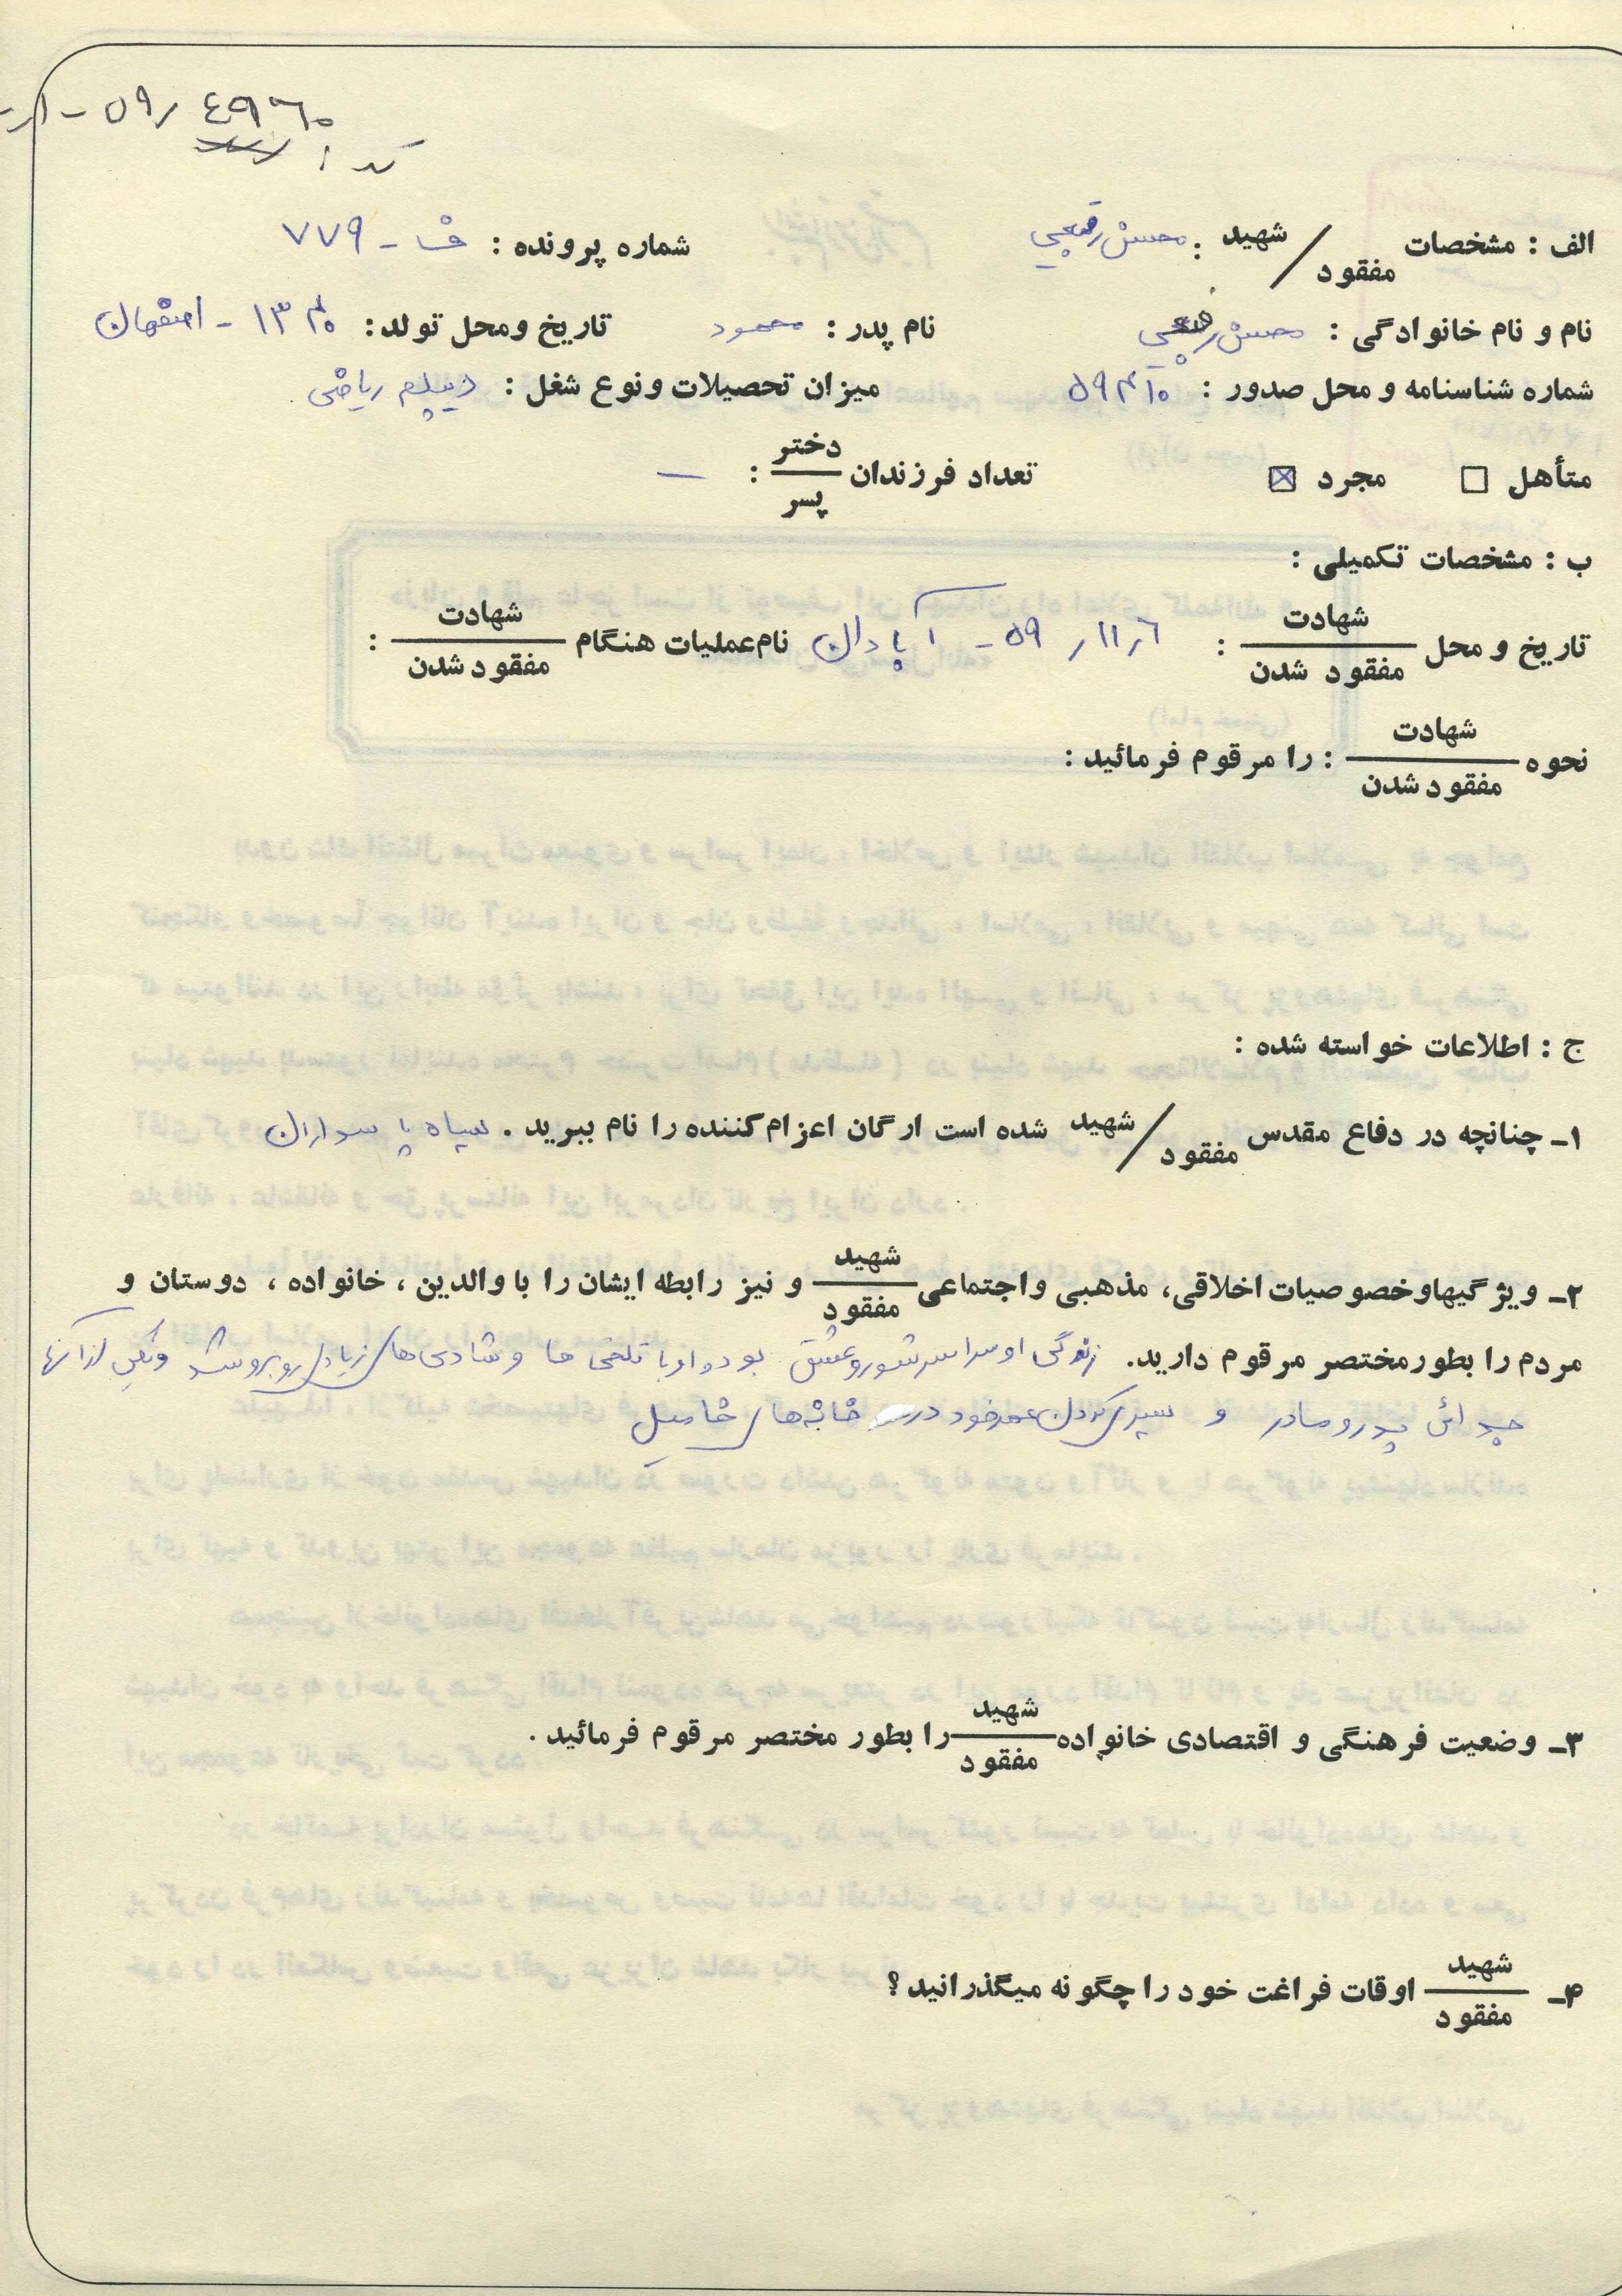 ۵۹/۴۹۶۰
کد :
الف : مشخصات شهید / مفقود : محسن رفیعی شماره پرونده : ف - ۷۷۹
نام و نام خانوادگی : محسن رفیعی نام پدر : محمود تاریخ ومحل تولد : ۱۳۴۰ - اصفهان
شماره شناسنامه و محل صدور : ۵۹۴۱۰ میزان تحصیلات ونوع شغل : دیپلم ریاضی
متأهل ☐ مجرد ☒ تعداد فرزندان دختر / پسر : —
ب : مشخصات تکمیلی :
تاریخ و محل شهادت / مفقود شدن : ۵۹/۱۱/۶ - آبادان نام عملیات هنگام شهادت / مفقود شدن :
نحوه شهادت / مفقود شدن : را مرقوم فرمائید :
ج : اطلاعات خواسته شده :
۱ـ چنانچه در دفاع مقدس شهید / مفقود شده است ارگان اعزام کننده را نام ببرید . سپاه پاسداران
۲ـ ویژگیهاوخصوصیات اخلاقی، مذهبی واجتماعی شهید / مفقود و نیز رابطه ایشان را با والدین ، خانواده ، دوستان و
مردم را بطورمختصر مرقوم دارید. زندگی او سراسر شور و عشق بود و او با تلخی ها و شادی های زیادی روبرو شد و یکی از آنها
جدائی پدر و مادر و سپری کردن عمر خود در خانه های فامیل
۳ـ وضعیت فرهنگی و اقتصادی خانواده شهید / مفقود را بطور مختصر مرقوم فرمائید .
۴ـ شهید / مفقود اوقات فراغت خود را چگونه میگذرانید ؟